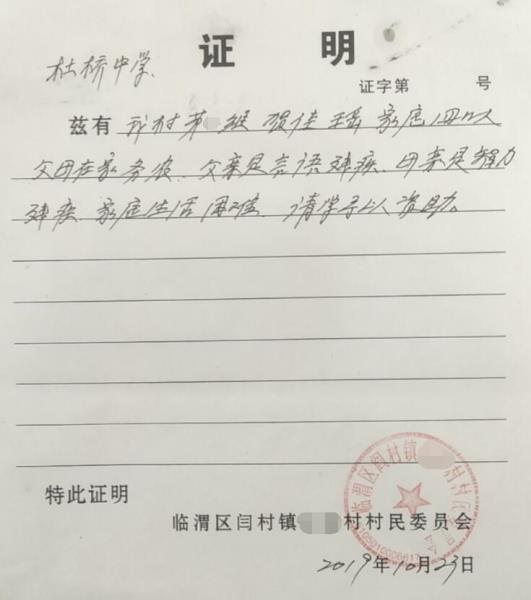 证 明
杜桥中学
证字第 号
兹有 我村第 组 贺佳瑶 家庭四口人
父母在家务农、父亲是言语残疾、母亲是智力
残疾、家庭生活困难 请学予以资助。
特此证明
临渭区闫村镇 村村民委员会
临渭区闫村镇 村村民委员会
2019年10月23日